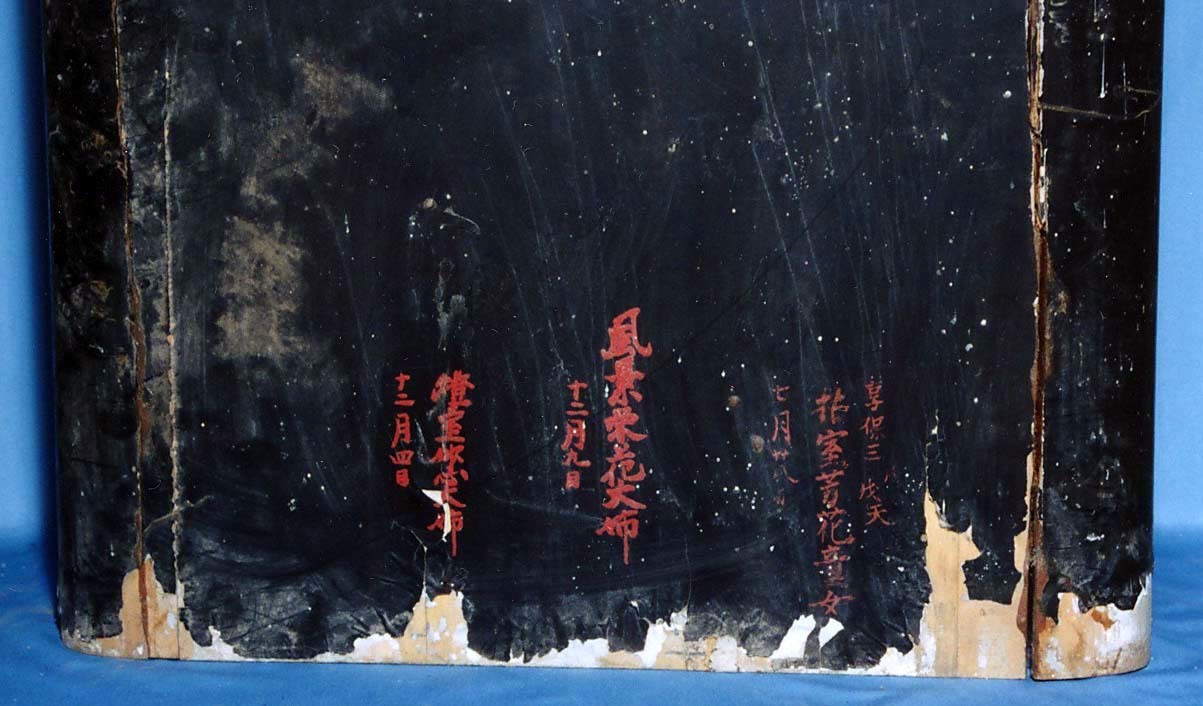 享保三 戊天
室芳花童女
七月廿八日
風景栄花大姉
十二月九日
大姉
十二月四日